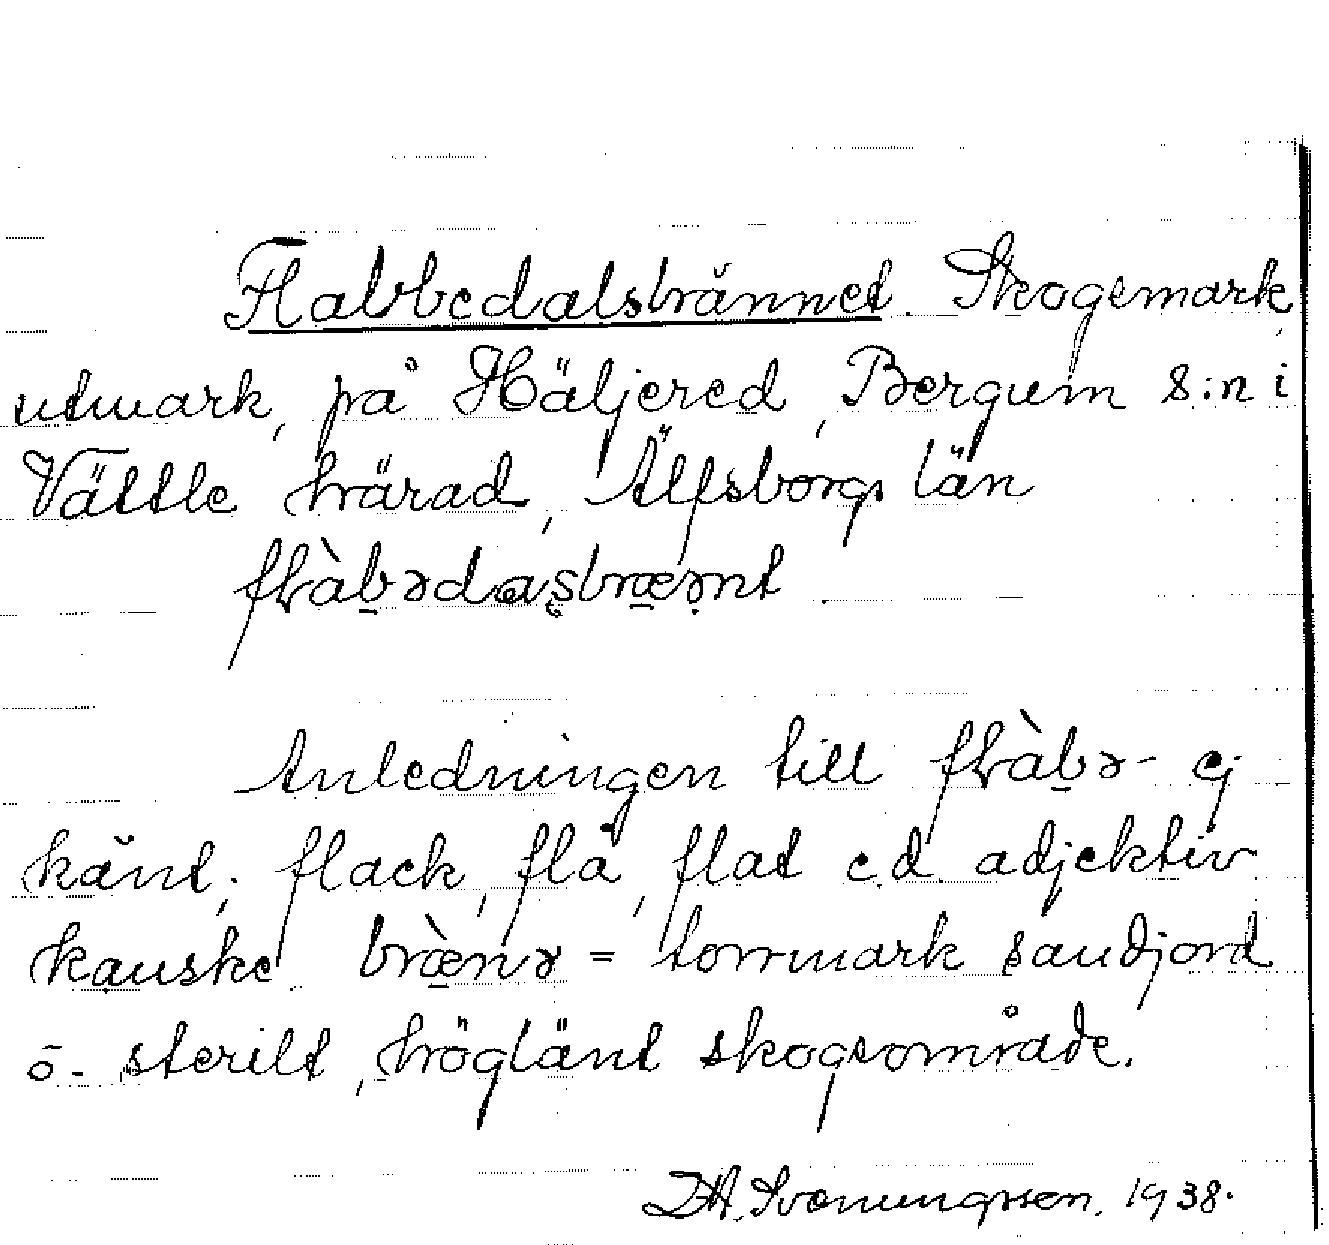 Flabbedalsbrännet. Skogsmark
utmark, på Häljered, Bergum s:n i
Vättle härad, Älfsborgs län
flàbədasbræṇnt
Anledningen till flàbə- ej
känt; flack, flå, flat e.d. adjektiv
kanske. brænə = torrmark sandjord
o. sterilt, höglänt skogsområde.
D.A. Svenungsson. 1938.